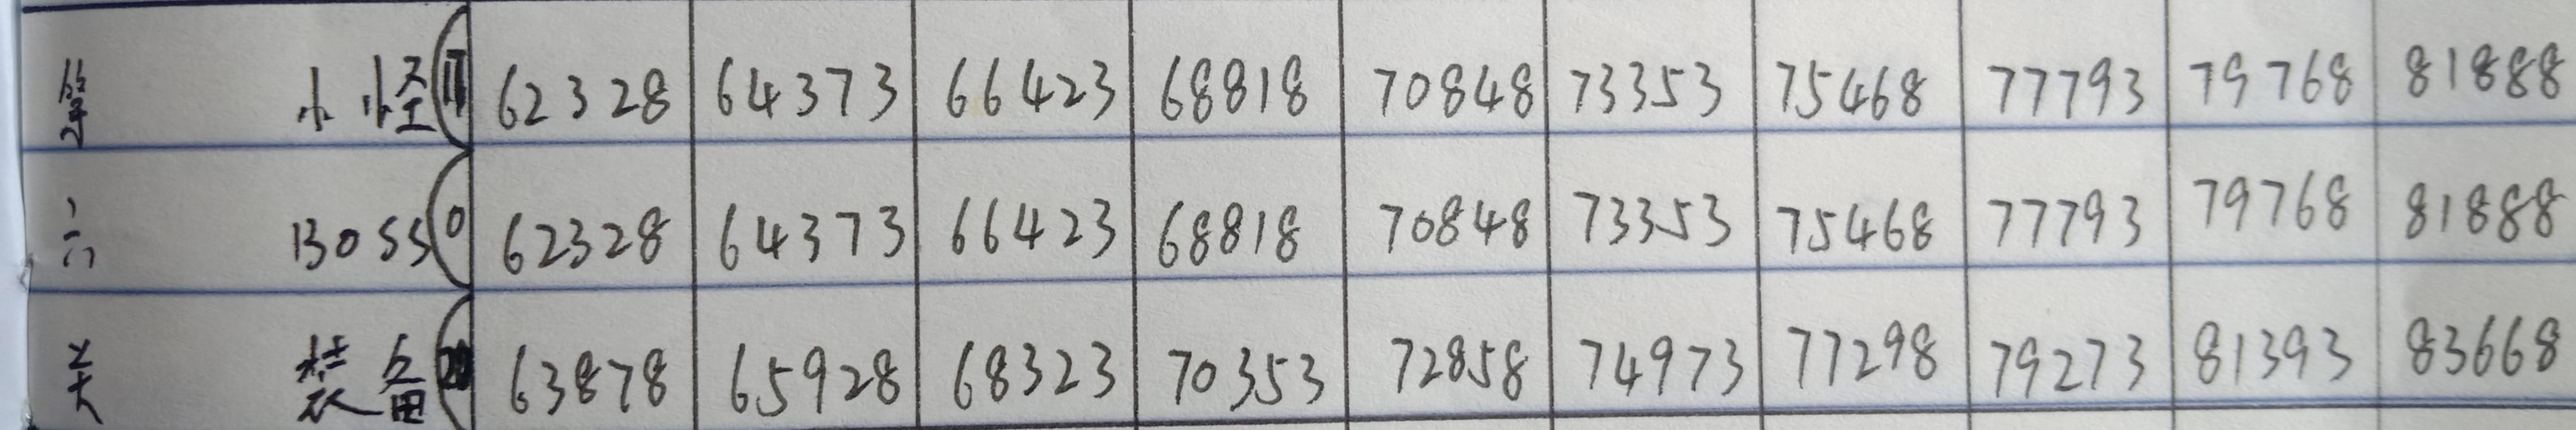 第 小怪 62328 64373 66423 68818 70848 73353 75468 77793 79768 81888
六 BOSS 0 62328 64373 66423 68818 70848 73353 75468 77793 79768 81888
关 装备 63878 65928 68323 70353 72858 74973 77298 79273 81393 83668